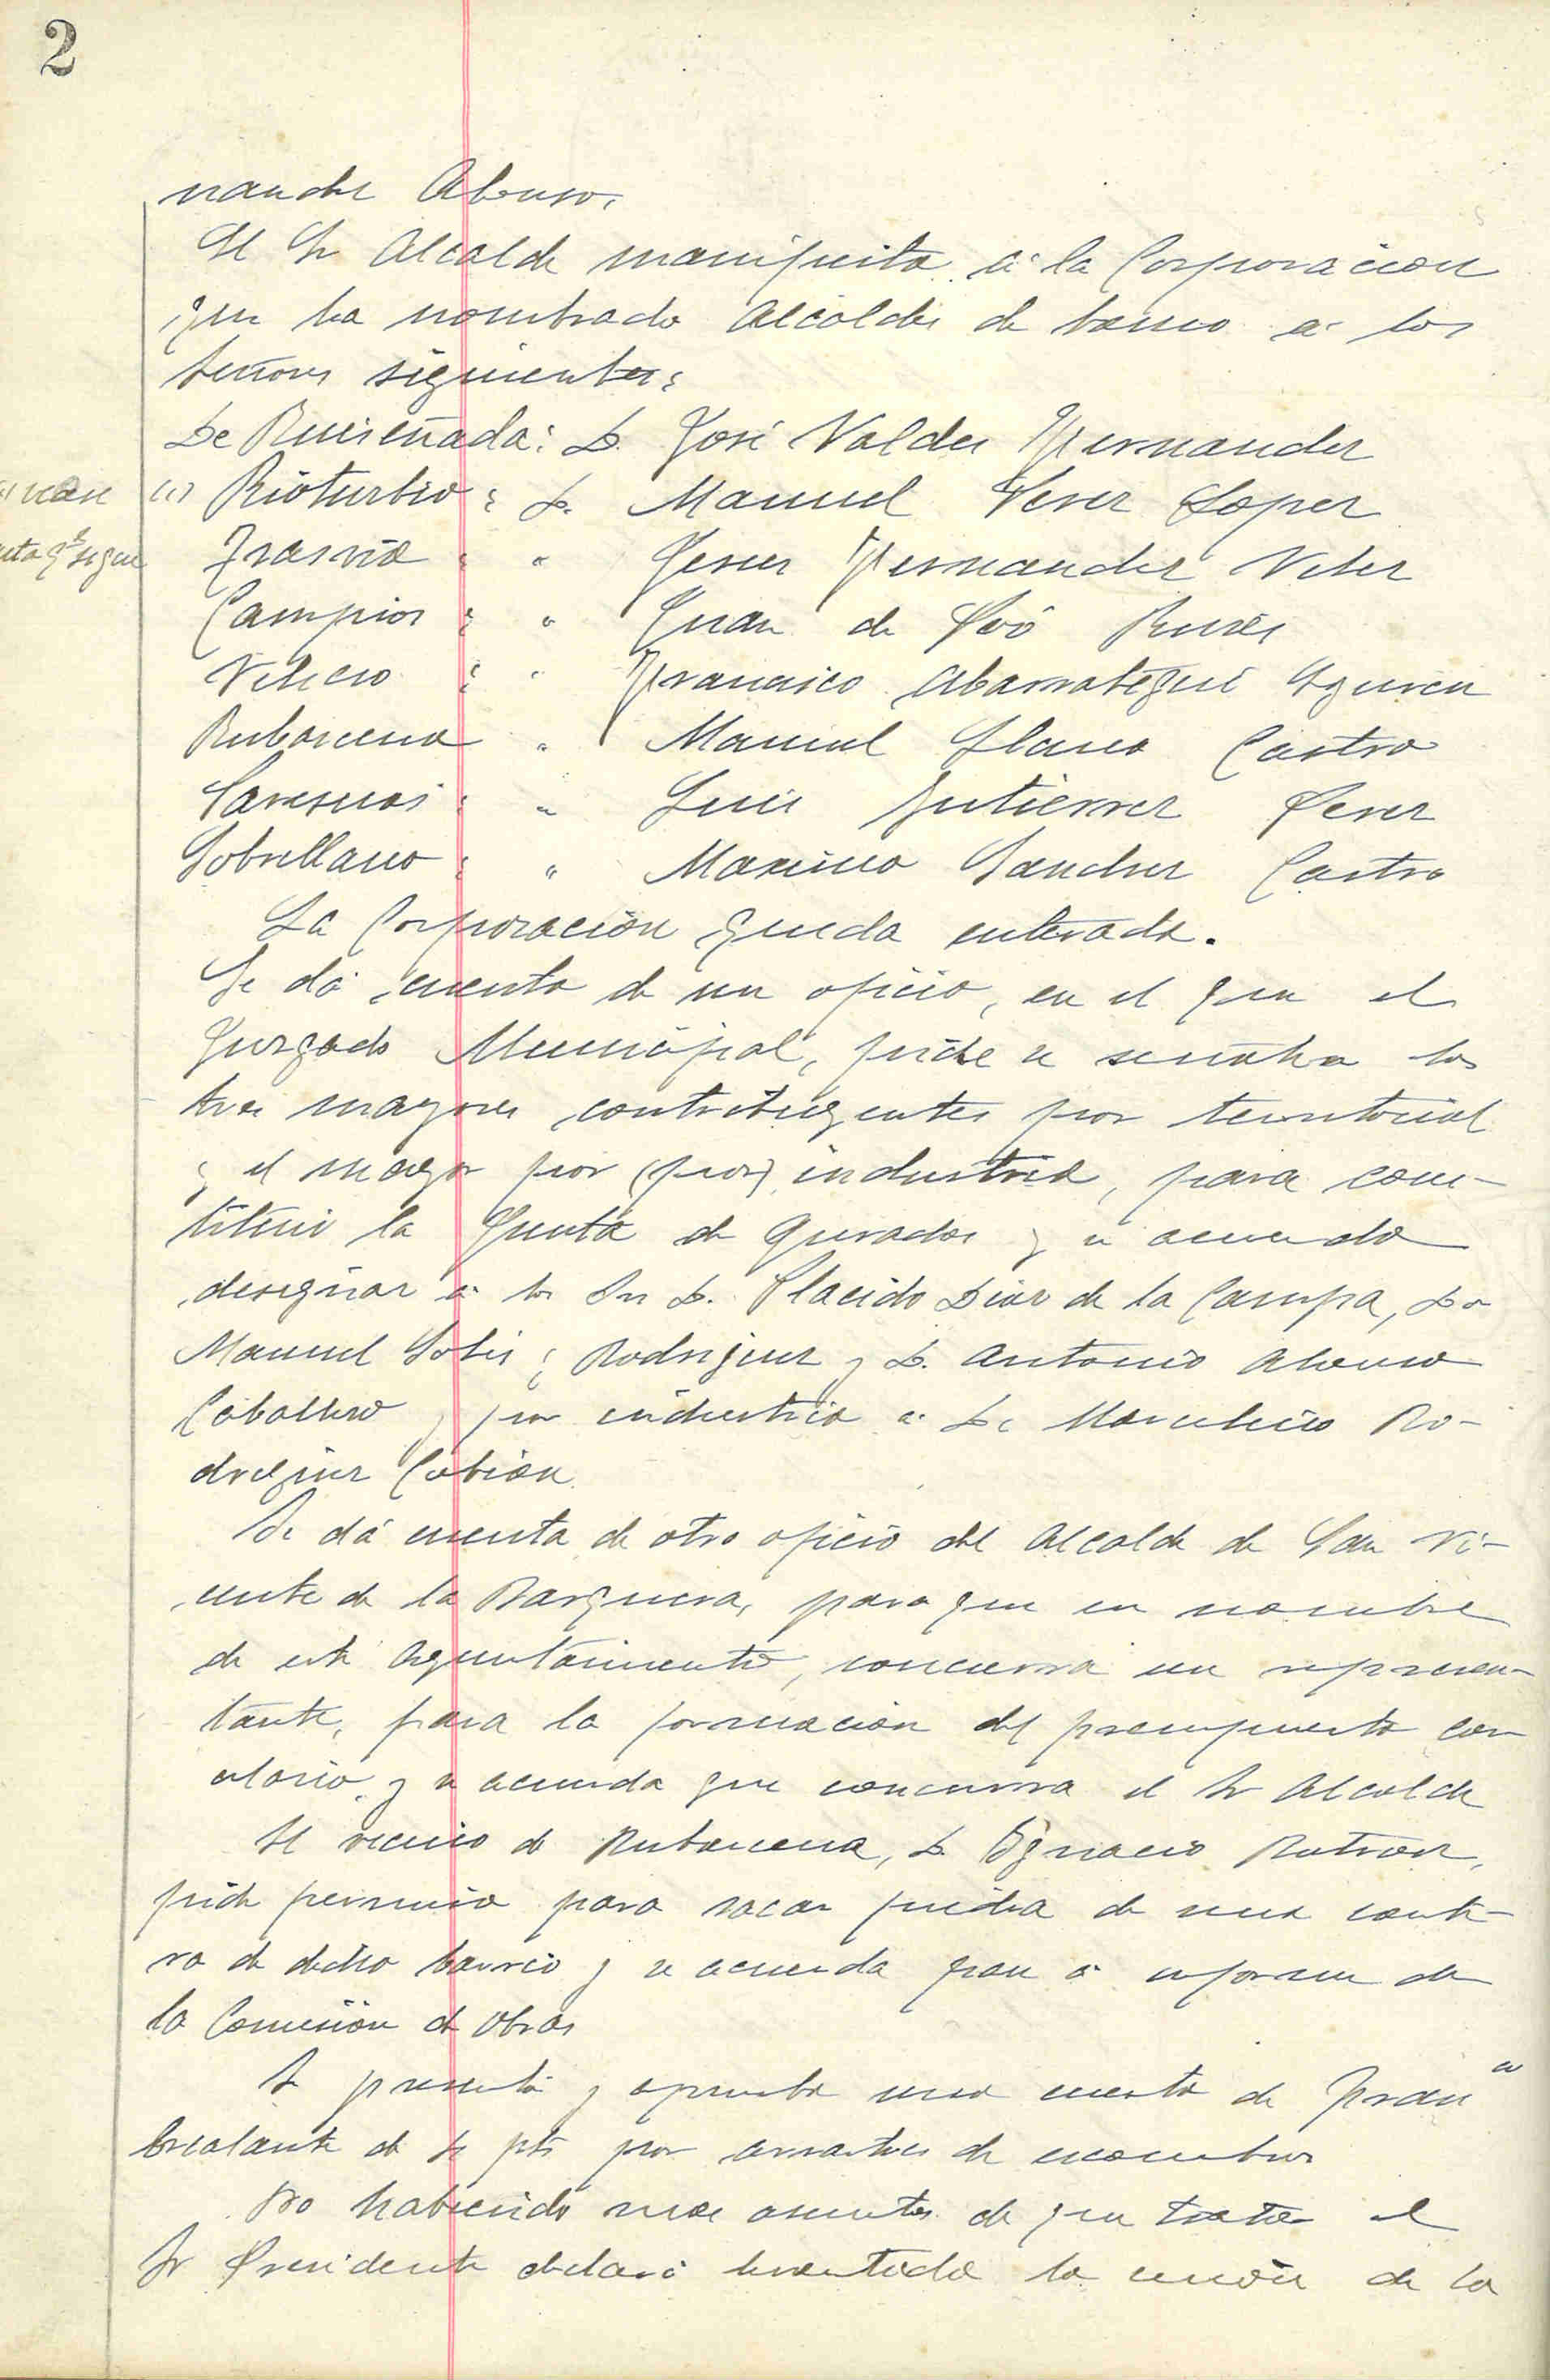 2
nandez Alonso.
El Sr Alcalde manifiesta á la Corporacion
que ha nombrado Alcaldes de barrio a los
señores siguientes:
De Ruiseñada: D. José Valdes Fernandez
(1) Rioturbio: D. Manuel Perez Lopez
Trasvia: " Jesus Fernandez Velez
Campios: " Juan de Poó
Velecio: " Francisco Abarrategui
Rubarcena " Manuel Llano Castro
Sansueñas: " Luis Gutierrez Perez
Sobrellano: " Maximo Sanchez Castro
La Corporación queda enterada.
Se dá cuenta de un oficio, en el que el
Juzgado Municipal, pide se señalen los
tres mayores contribuyentes por territorial
y el mayor por (por) industria, para cons-
tituir la Junta de Jurados y se acuerda
designar á los Srs D. Placido Diaz de la Campa, Don
Manuel Solis y Rodriguez y D. Antonio Alonso
Caballero y por industria a D. Marcelino Ro-
driguez Cobian.
Se dá cuenta de otro oficio del Alcalde de San Vi-
cente de la Barquera, para que en nombre
de este Ayuntamiento, concurra un represen-
tante, para la formación del presupuesto car
celario, y se acuerda que concurra el Sr Alcalde
El vecino de Rubarcena, D. Ignacio
pide permiso para sacar piedra de una cante-
ra de dicho barrio y se acuerda pase á informe de
la Comisión de Obras
Se presenta y aprueba una cuenta de Fran co
Escalante de pts por arrastres de escombros
No habiendo mas asuntos de que tratar el
Sr Presidente declaró levantada la sesión de la